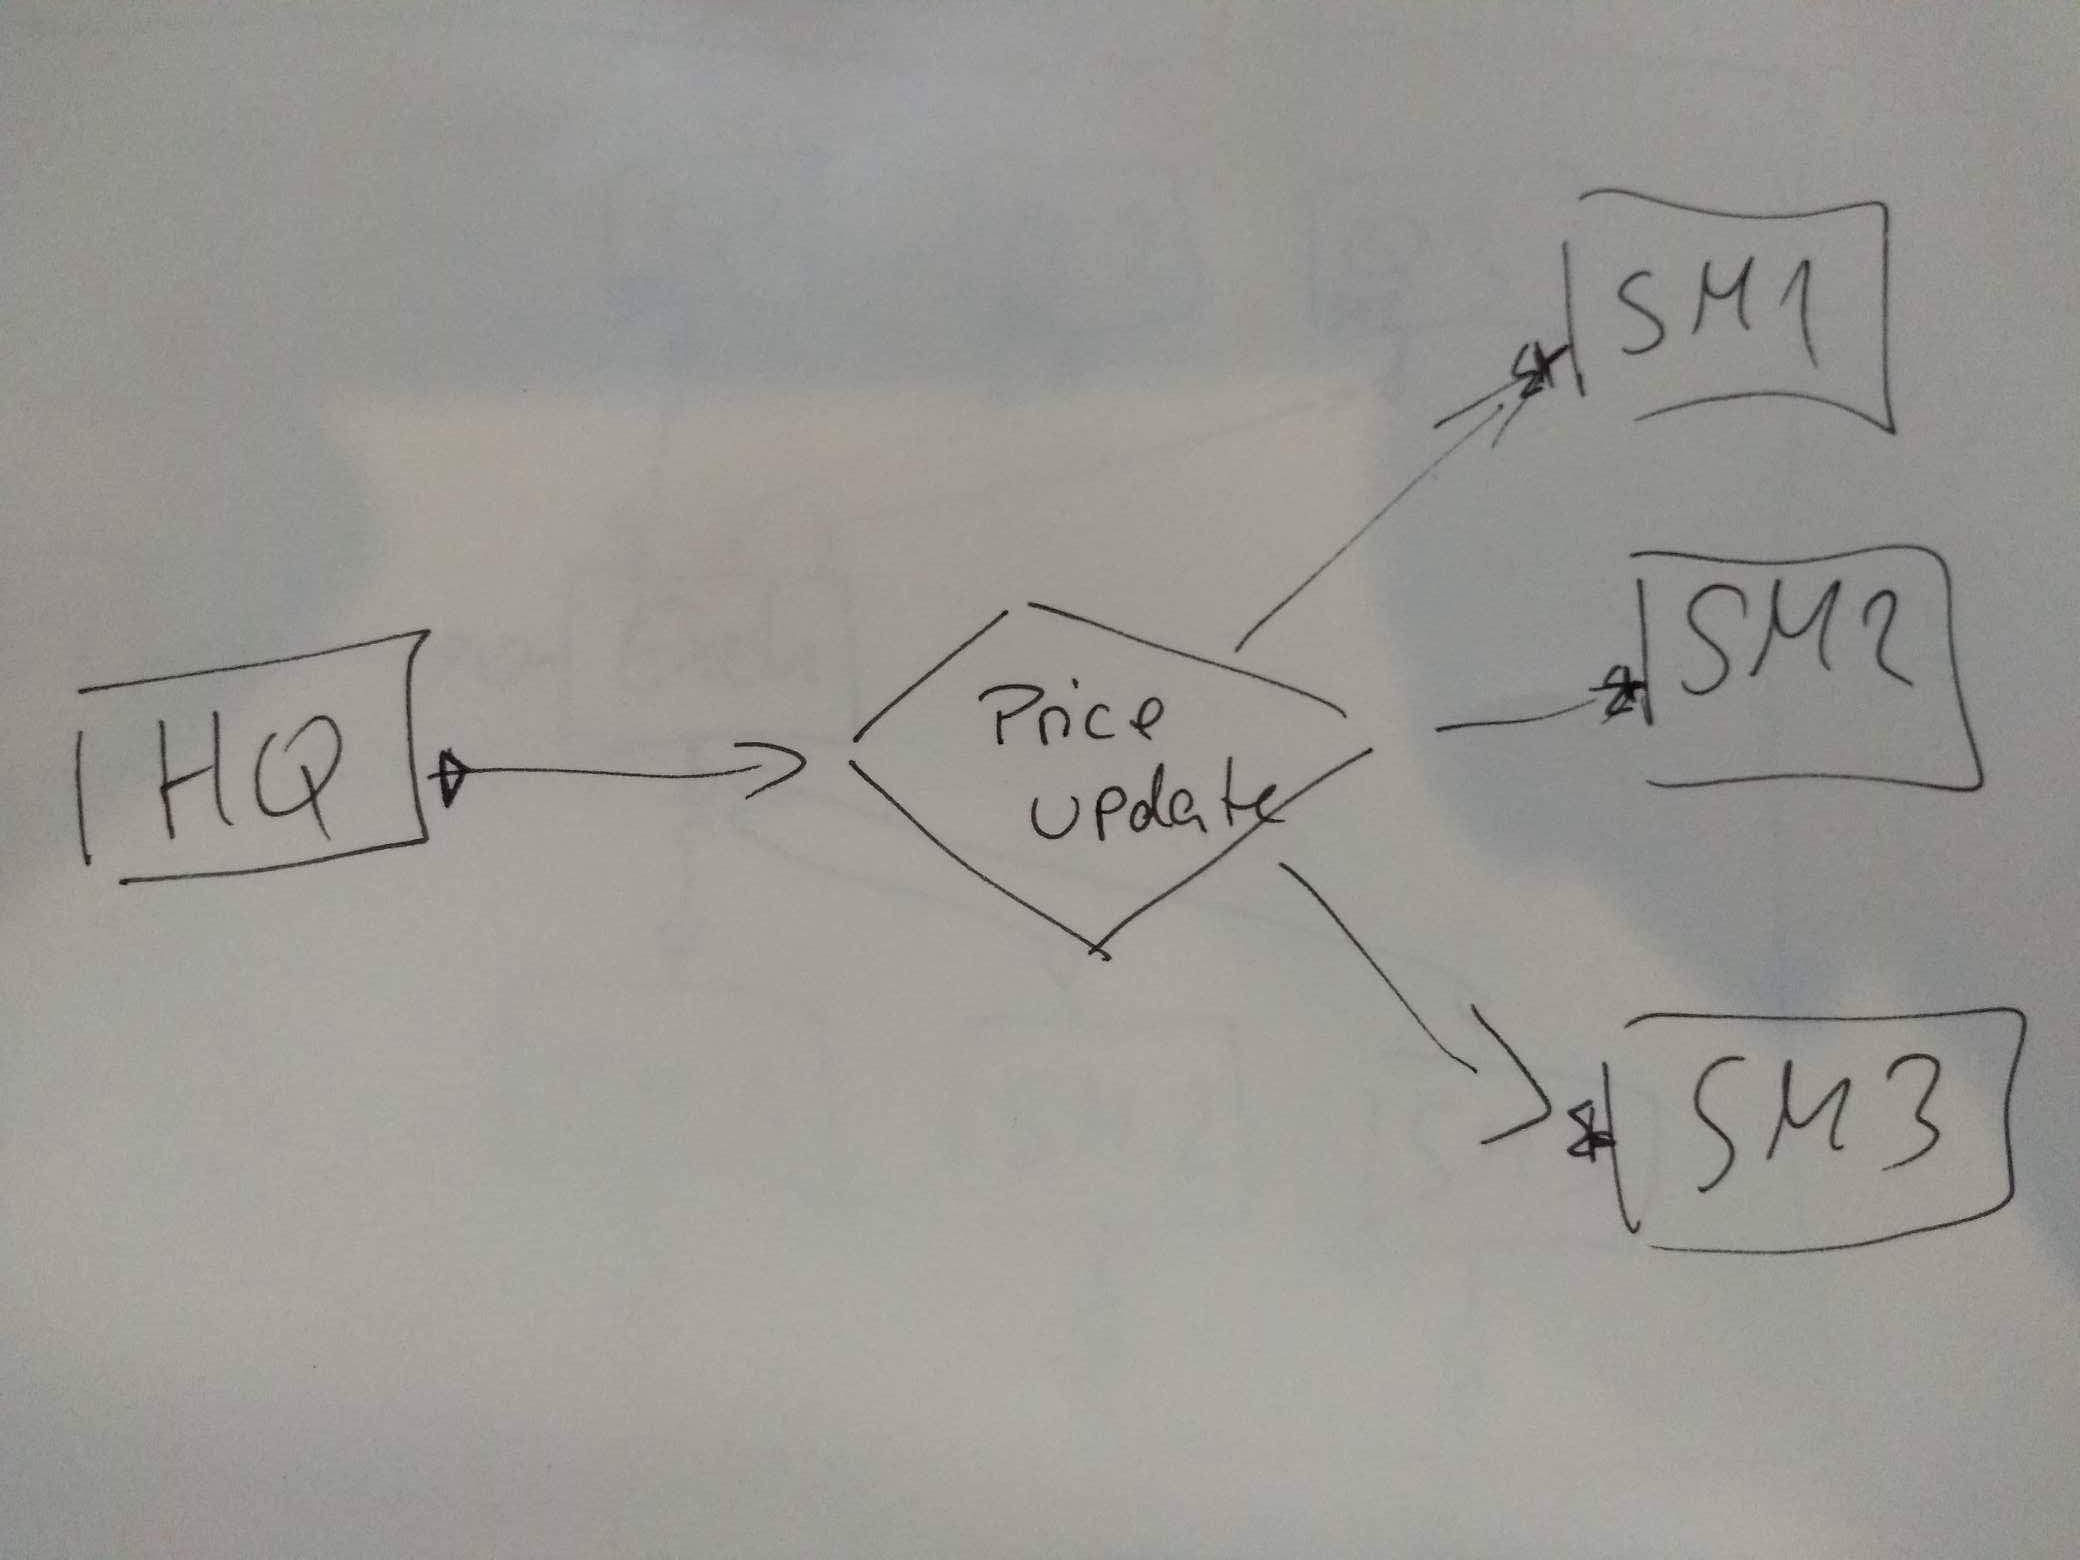 HQ
Price
update
SM1
SM2
SM3